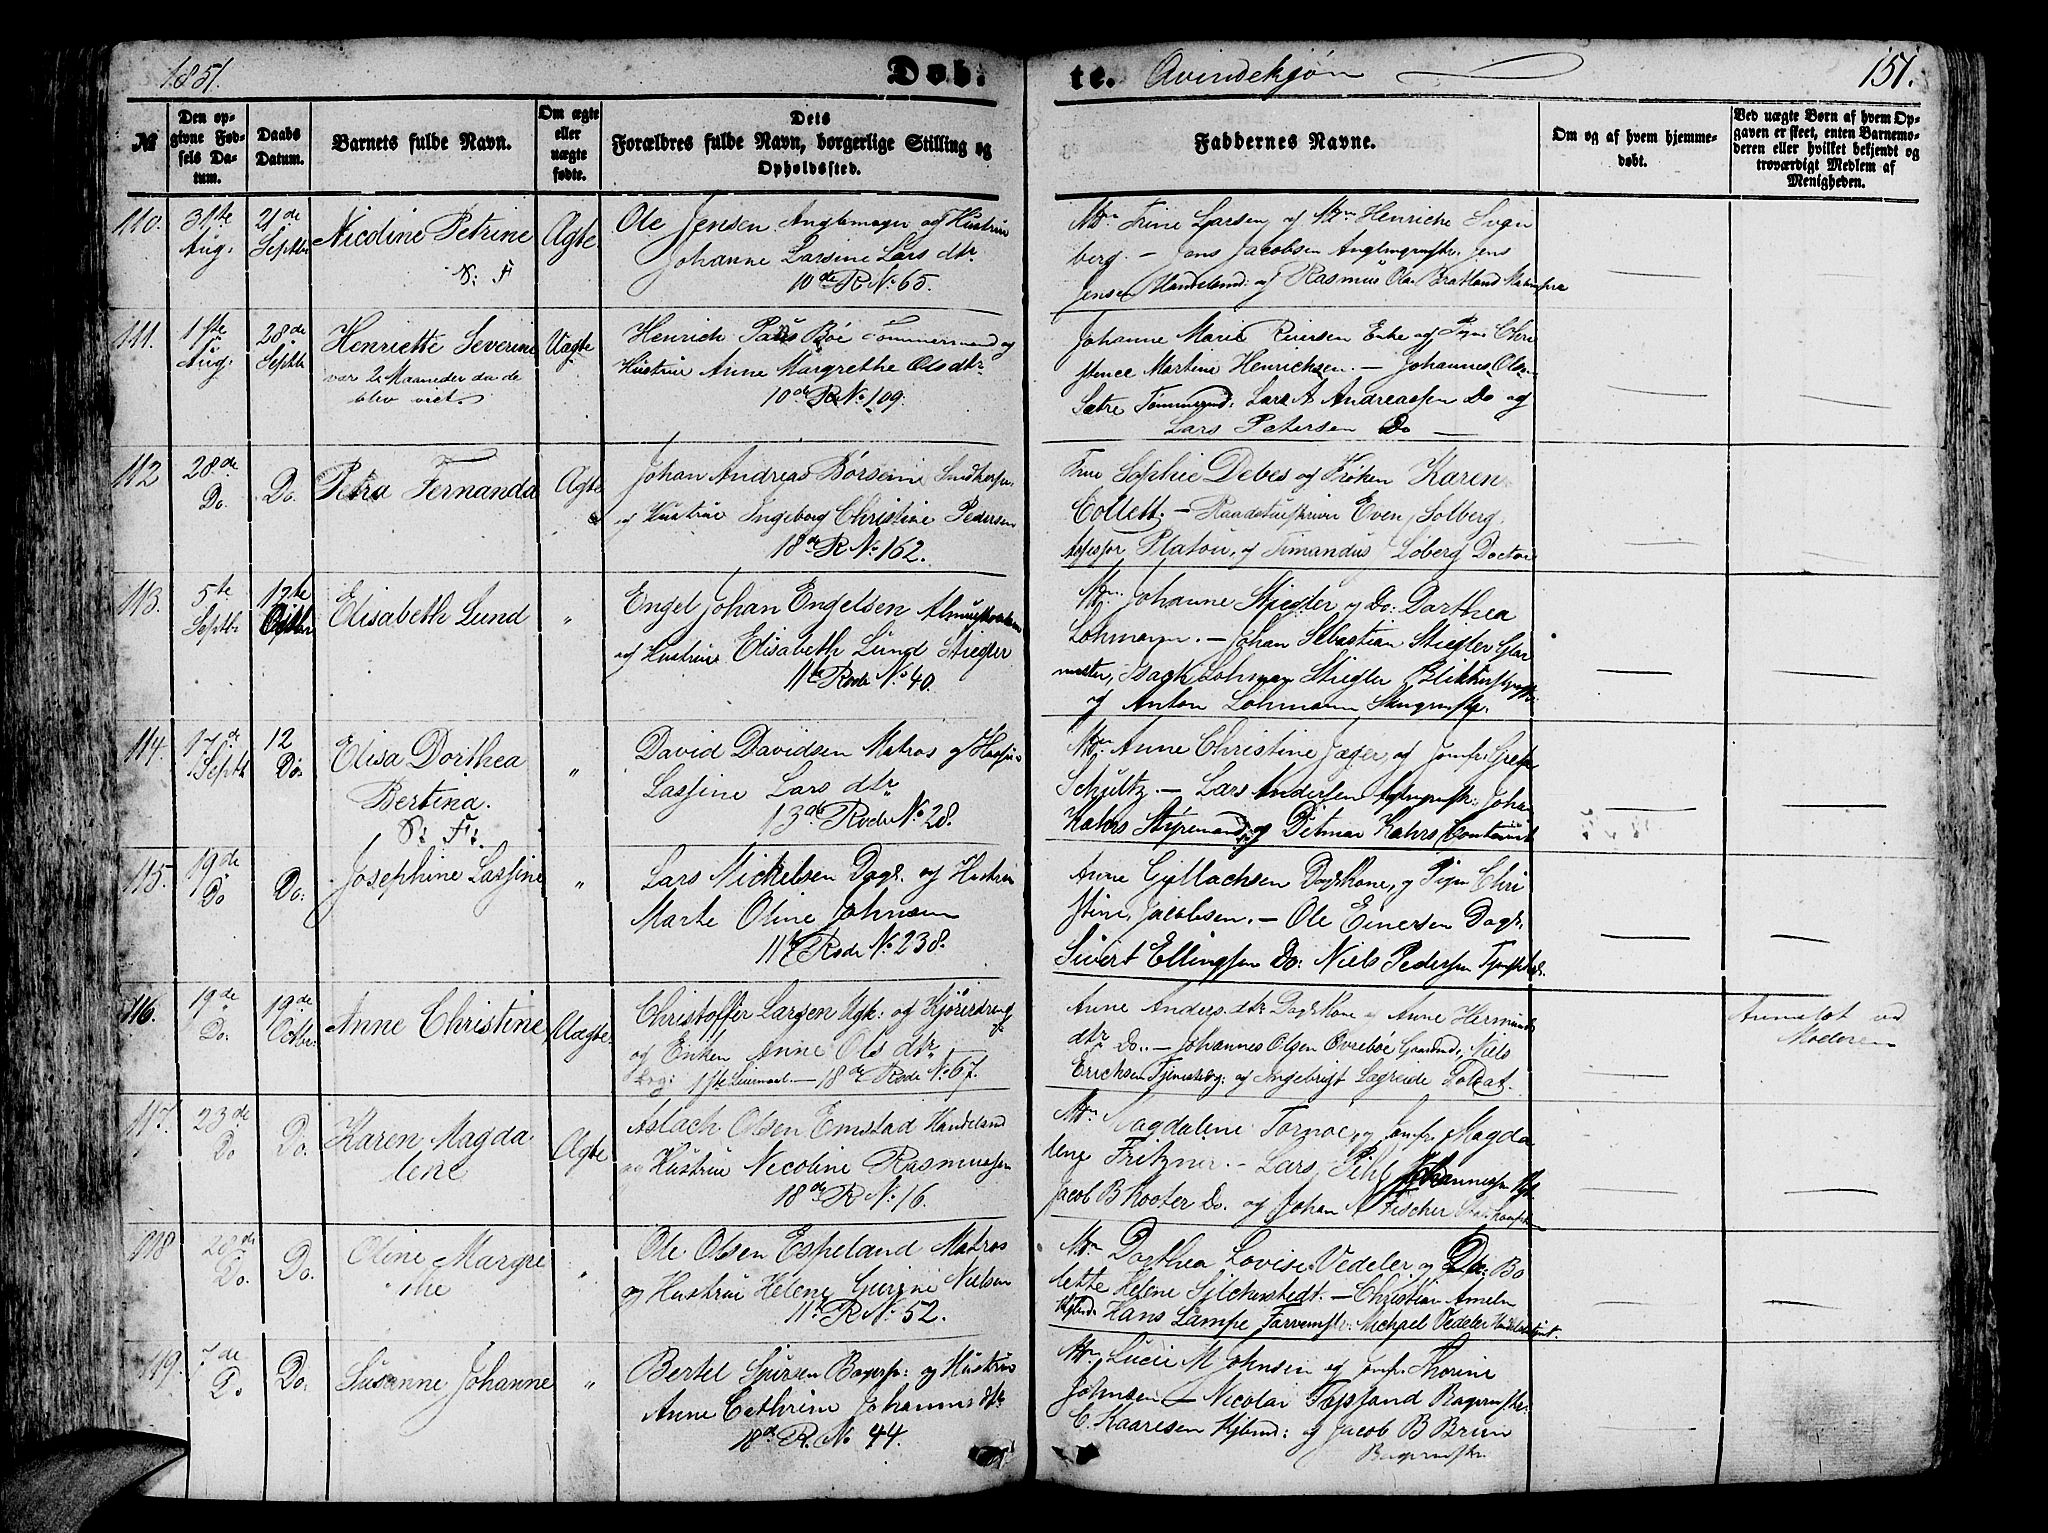 1851.
Døb-
te.
Qvindekjøn
151.
№
Den op-
givne Fød-
sels Da-
tum.
Daabs
Datum.
Barnets fulde Navn.
Om ægte
eller
uægte
fødte.
Dets
Forældres fulde Navn, borgerlige Stilling og
Opholdssted.
Faddernes Navne.
Om og af hvem hjemme-
døbt.
Ved uægte Børn af hvem Op-
gaven er skeet, enten Barnemo-
deren eller hvilket bekjendt og
troværdigt Medlem af
Menigheden.
110.
31te
Aug.
21de
Septbr
Nicoline Petrine
N: F
Ægte
Ole Jensen
og Hustrue
Johanne Larsine Lars dtr.
10de R No 65.
Mdm Trine Larsen, og Mdm Henriche
berg. — Jens Jacobsen
Jens
Jensen Handelsmd: og Rasmus Olai Bratland
111.
1ste
Aug.
28de
Septbr
Henriette Severine
var 2 Maaneder da de
blev viet.
Uægte
Henrich Bøe Tømmermand og
Hustrue Anne Margrethe Olsdtr
10de R No 109.
Johanne Marie Enke og Pige Chri
stence Martine Henrichsen. — Johannes Ols.
Sætre Tømmermd: Lars A Andreassen Do og
Lars Petersen Do —
112
28de
Do.
Do.
Petra Fernanda
Ægte
Johan Andreas Børseine
og Hustrue Ingeborg Christine Pedersen
18de R No 162.
Frue Sophie Debes og Frøken Karen
Collett. — Raadstueskriver Even Solberg,
Assessor Platou, og Timandus Løberg Doctor
113.
5te
Septbr
12te
Octbr
Elisabeth Lund
"
Engel Johan Engelsen
og Hustrue Elisabeth Lund Stiegler
11te Rode No 40.
Mdm. Johanne Stiegler og Do: Dorthea
Lohmann. — Johan Sebastian Stiegler Glar
mester, Isach Lohman Stiegler
og Anton Lohmann
114.
17de
Septb
12
Do.
Elisa Dorthea
Bertina.
N: F:
"
David Davidsen Matros og Hustrue
Lassine Lars dtr
13de Rode No 28.
Mdm Anne Christine Jæger, og Jomfr:
Schultz. — Lars Andersen
Johan
Kahrs Styrmand, og Ditmar Kahrs
115.
19de
Do
Do.
Josephine Lassine
"
Lars Mickelsen Dags. og Hustrue
Marte Oline Johnsen
11te Rode No 238.
Anne Dagskone, og Pige Chri
stine Jacobsen. — Ole Einersen Dags.
Sivert Ellingsen Do: Niels Pedersen
116.
19de
Do.
19de
Octbr:
Anne Christine
Uægte
Christoffer Larsen Ugk: og Kjøredreng
og Enken Anne Ols dtr
1ste Leiermaal — 18de Rode No 67.
Anne Anders dtr Dagskone og Anne Hermunds
dtr Do. — Johannes Olsen Øvrebøe Gaardmd, Niels
Erichsen og Ingebrigt Lagreide Soldat.
Anmeldt ved
Moderen
117.
23de
Do
Do.
Karen Magda-
lene
Ægte
Aslach Olsen Emstad Handelsmd
og Hustrue Nicoline Rasmussen
18de R No 16.
Mdm Magdalene Tornøe, og Jomfr. Magda
lene Fritzner. — Lars Pihl Johannessen
Jacob B Kooter Do. og Johan A Fischer
118
Do.
Do.
Oline Margre
the
"
Ole Olsen Espeland Matros
og Hustrue Helene Gurine Nielsen
11te R No 52.
Mdm Dorthea Lovise Vedeler og Do: Bo
lette Helene Silchenstedt. — Christian Ameln
Hans Lampe Farvemstr: Michael Vedeler
119.
7de
Do
Do.
Susanne Johanne
"
Bertel og Hustrue
Anne Cathrine Johannesdtr
18de R. No 44.
Mdm Lucie M Johnsen og Jomfr. Thorine
Johnsen — Nicolai Bagermstr:
C. Kaaresen Kjbmd: og Jacob B Bruun
Bagermstr.